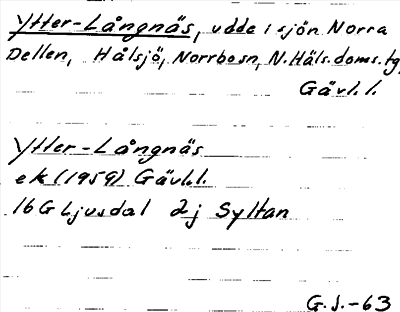 Ytter-Långnäs, udde i sjön Norra
Dellen, Hålsjö, Norrbo sn, N. Häls. doms. tg,
Gävl. l.
Ytter-Långnäs
ek (1959) Gävl. l.
16 G Ljusdal 2j Syltan
G. J. -63